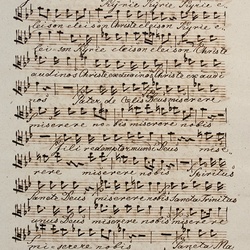 Kyrie Kyrie Kyrie e,
leison eleison Christe eleison Kyrie e,
lei-son Kyrie eleison eleison Christe
audi nos Christe exaudi nos Christe ex audi
nos Pater de Celis Deus miserere
miserere nobis miserere nobis
Fili redemptor mundi Deus mise,
rere miserere nobis Spiritus
Sancte Deus miserere nobis Sancta Trinitas
unus Deus miserere nobis miserere
mi-serere nobis Sancta Ma,